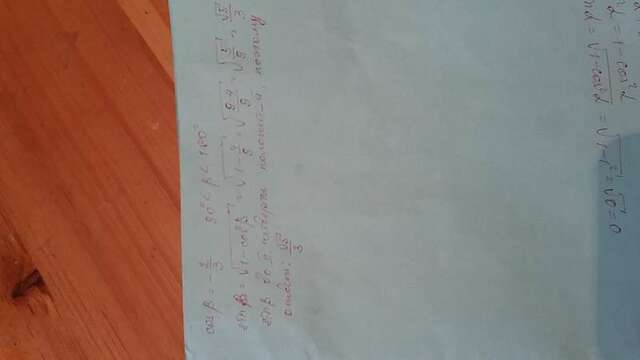 cos β = -2/3    90° < β < 180°
sin β = √(1-cos²β) = √(1-4/9) = √((9-4)/9) = √(5/9) = √5/3
sin β во II четверти положит-й, поэтому
ответ: √5/3
= √(1-cos²α) = √(1-1²) = √0 = 0
= 1-cos²α